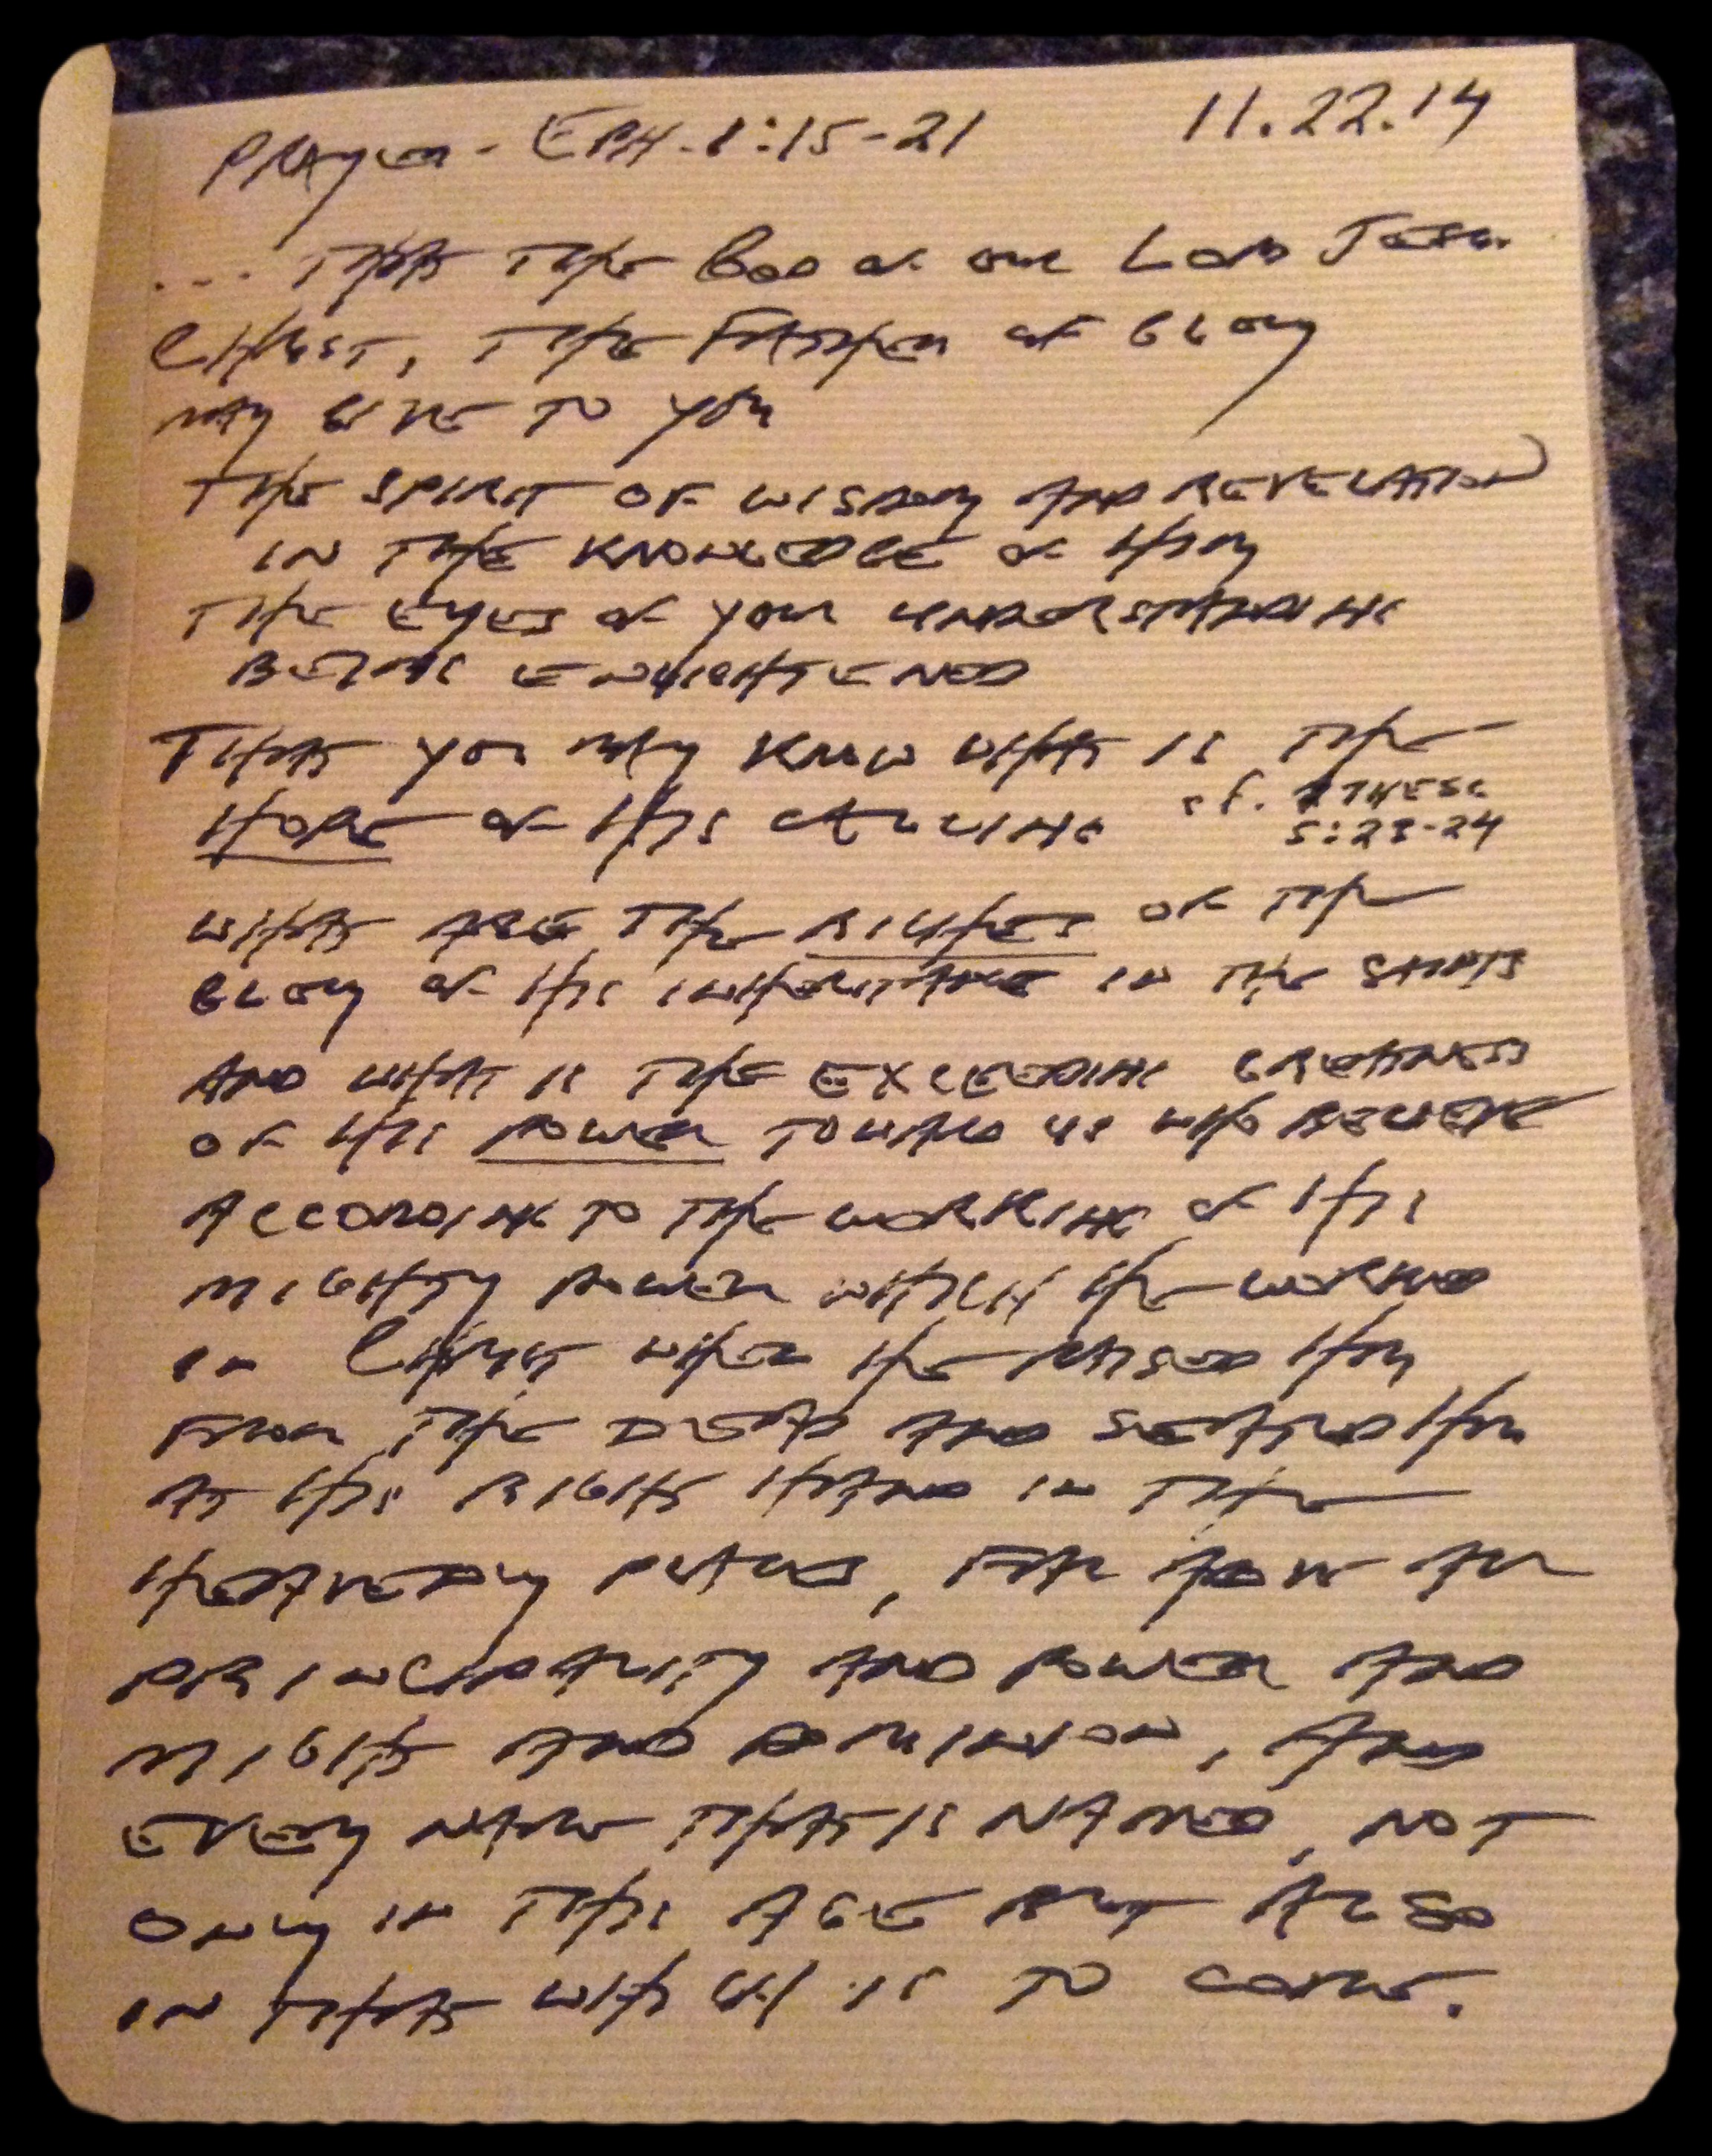 PRAYER - EPH. 1:15-21 11.22.14
... THAT THE GOD OF OUR LORD JESUS
CHRIST, THE FATHER OF GLORY
MAY GIVE TO YOU
THE SPIRIT OF WISDOM AND REVELATION
IN THE KNOWLEDGE OF HIM
THE EYES OF YOUR UNDERSTANDING
BEING ENLIGHTENED
THAT YOU MAY KNOW WHAT IS THE
HOPE OF HIS CALLING cf. 1 THESS
5:23-24
WHAT ARE THE RICHES OF THE
GLORY OF HIS INHERITANCE IN THE SAINTS
AND WHAT IS THE EXCEEDING GREATNESS
OF HIS POWER TOWARD US WHO BELIEVE
ACCORDING TO THE WORKING OF HIS
MIGHTY POWER WHICH HE WORKED
IN CHRIST WHEN HE RAISED HIM
FROM THE DEAD AND SEATED HIM
AT HIS RIGHT HAND IN THE
HEAVENLY PLACES, FAR ABOVE ALL
PRINCIPALITY AND POWER AND
MIGHT AND DOMINION, AND
EVERY NAME THAT IS NAMED, NOT
ONLY IN THIS AGE BUT ALSO
IN THAT WHICH IS TO COME.